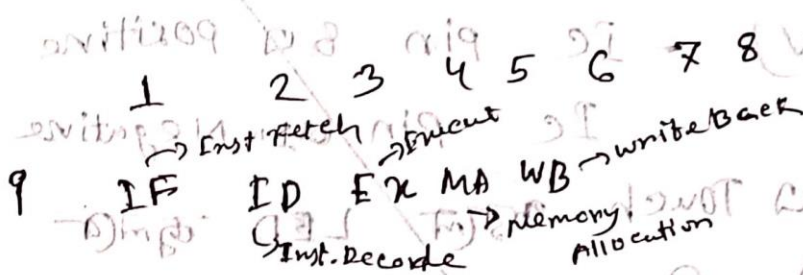 1 2 3 4 5 6 7 8
→ Inst Fetch → Execut
9 IF ID EX MA WB → Write Back
→ Inst. Decorde → Memory Allocation